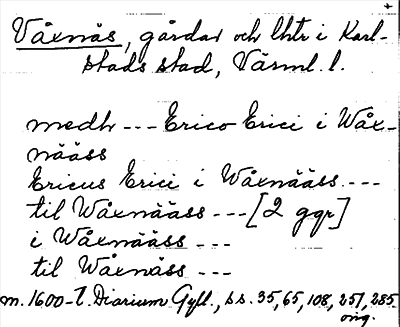 Våxnäs, gårdar och lhtr i Karl-
stads stad, Värml. l.
medh --- Erico Erici i Wåx-
nääss
Ericus Erici i Wåxnääss ---
til Wåxnääss --- [2 ggr]
i Wåxnääss ---
til Wåxnäss ---
m. 1600-t. Diarium Gyll., ss. 35, 65, 108, 251, 285
orig.